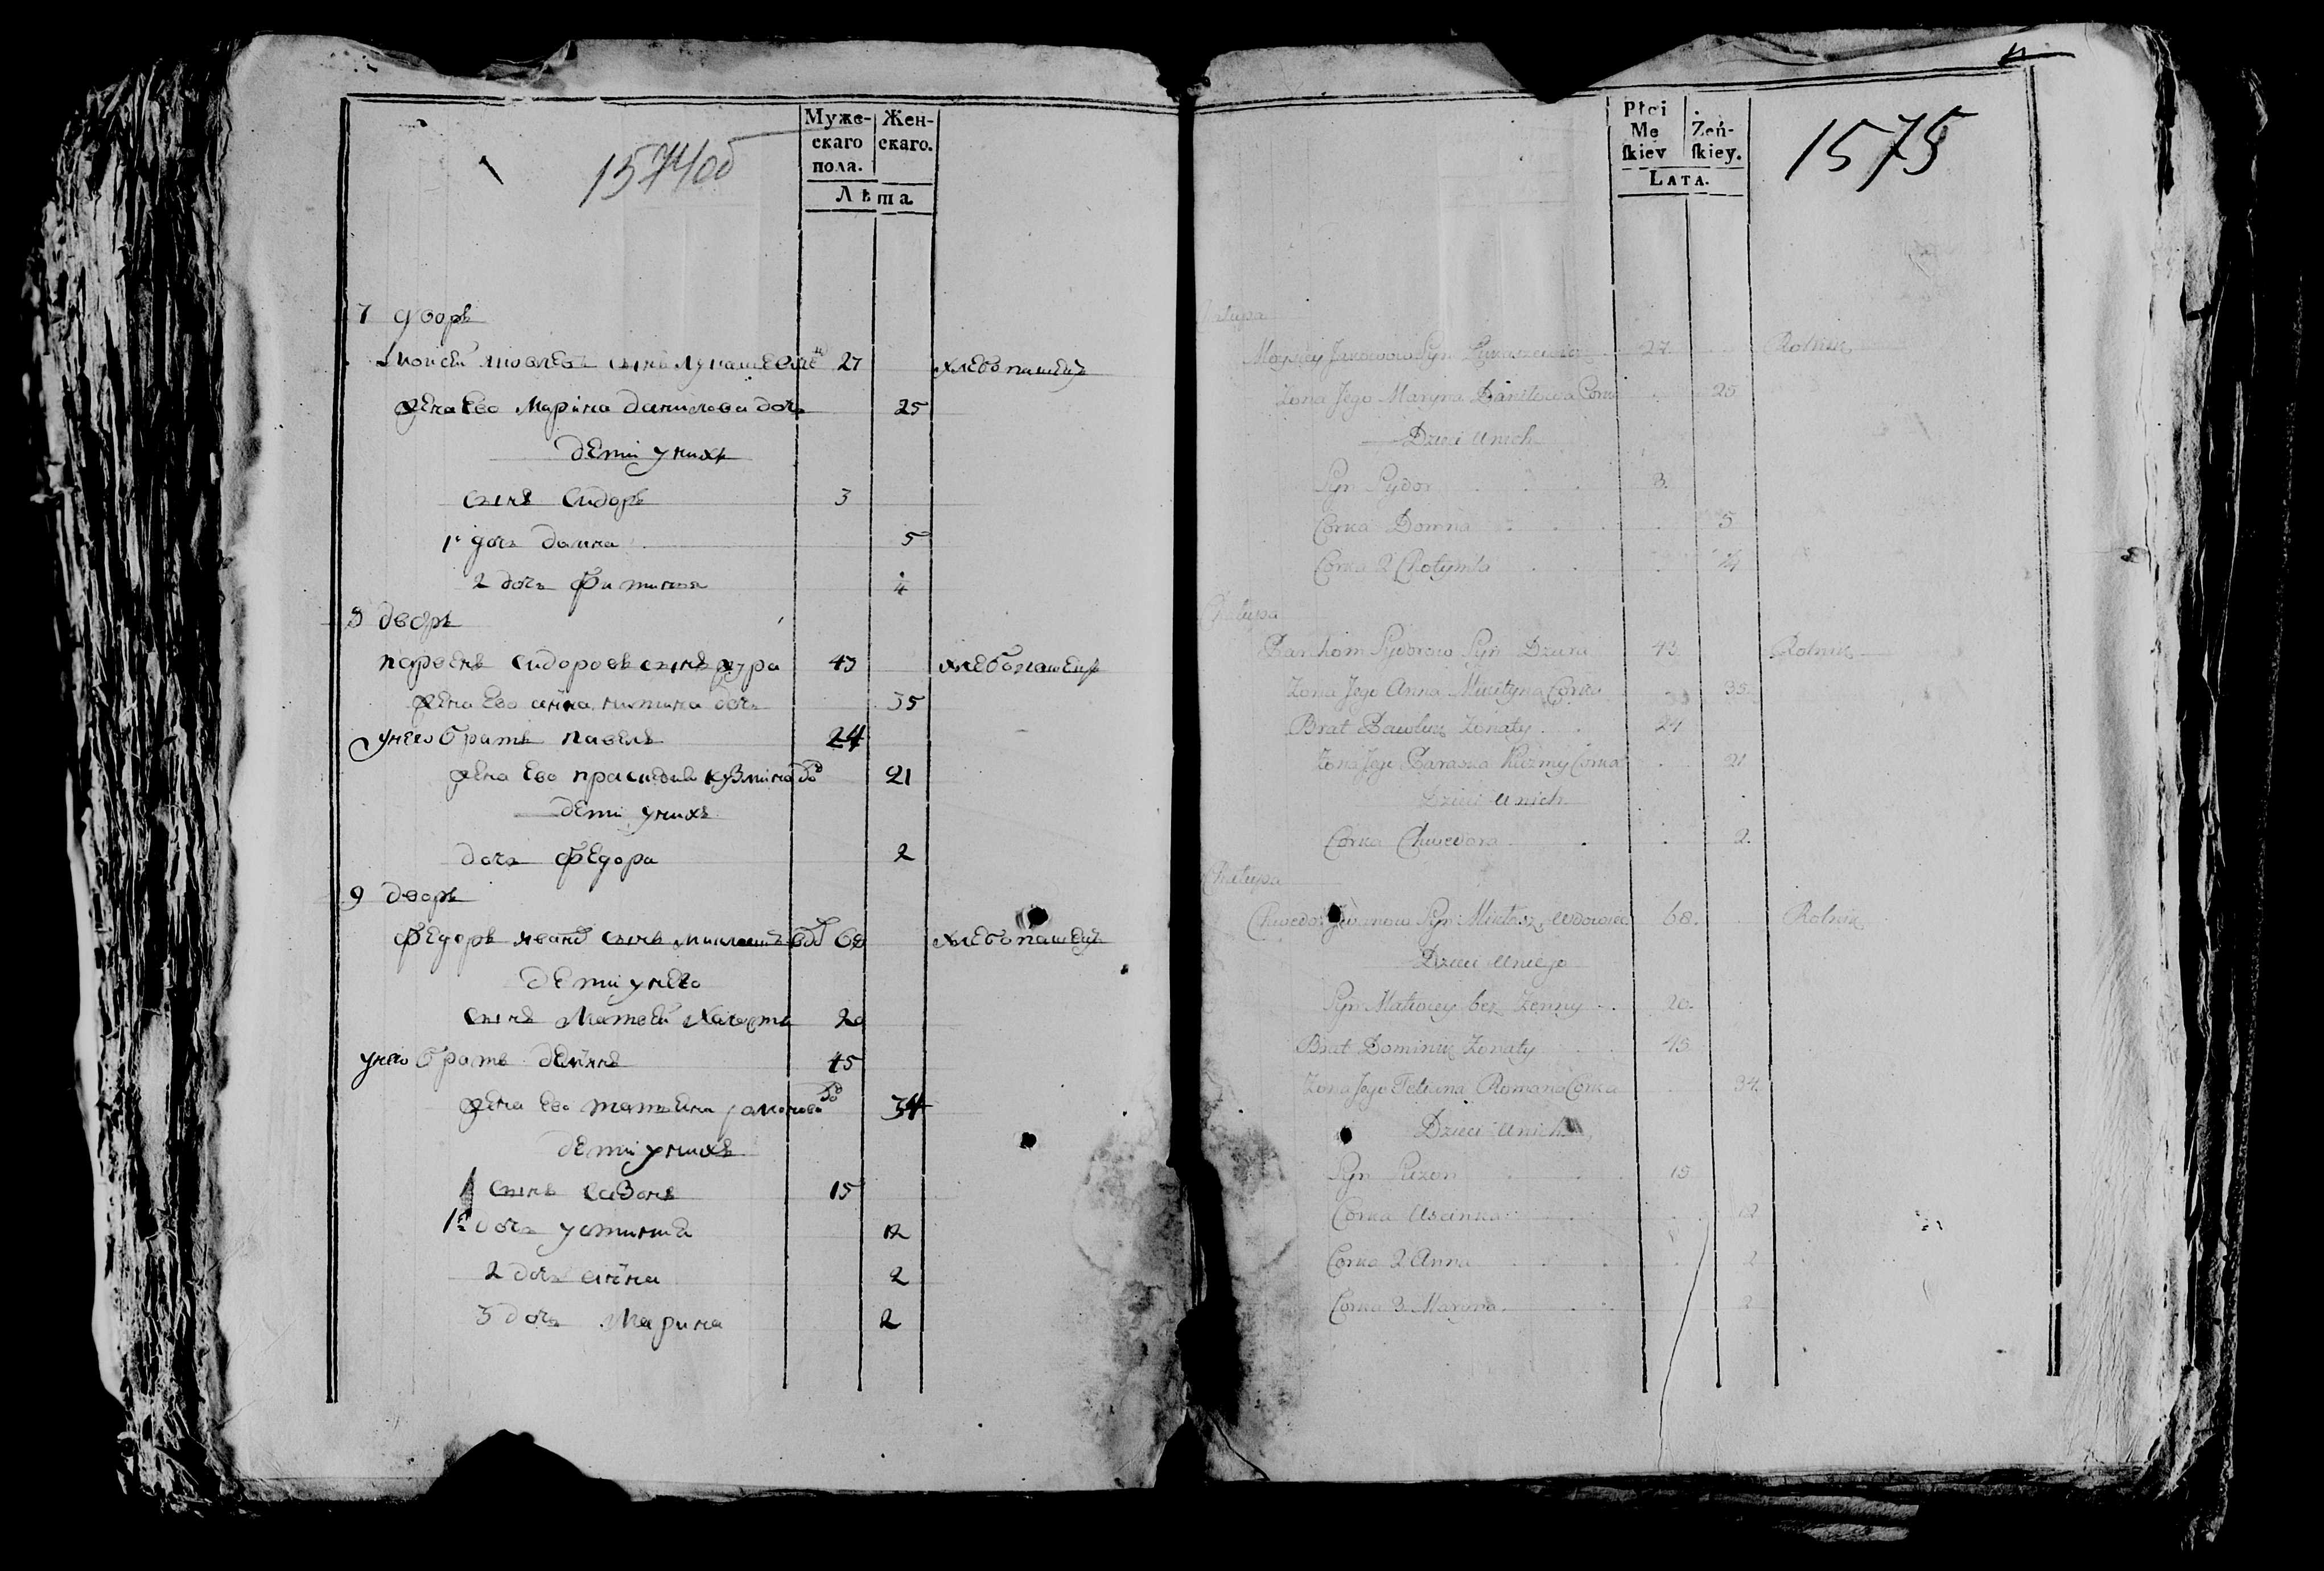 1574об
Муже-
скаго
пола.
Жен-
скаго.
Лѣта
7 дворъ
Моисей яковлевъ сынъ лукашевич 27 хлебопашецъ
жена Ево Марина данилова дочь 25
дети унихъ
сынъ Сидоръ 3
1 дочь домна 5
2 дочь фитиния 4
8 дворъ
парфенъ сидоровъ сынъ 43 хлебопашецъ
жена Ево анна никитина дочь 35
унего братъ павелъ 24
жена Ево праскевия кузмина до 21
дети унихъ
дочь федора 2
9 дворъ
федоръ иванов сынъ вдо 68 хлебопашецъ
дети унего
сынъ Матвей 20
унего братъ 45
жена Ево татьяна романова до 34
дети унихъ
1 сынъ сазонъ 15
1 дочь устиния 12
2 дочь анна 2
3 дочь Марина 2
Płci
Mę
ſkiey
Żeń-
ſkiey.
LATA.
1575
Chałupa
Moysiey Jakowow Syn Łukaszewicz 27 Rolnik
Zona Jego Maryna Daniłowa Corka 25
Dzieci unich
Syn Sydor 3
Corka Domna 5
Corka 2 Chotynia 4
Chałupa
Parchom Sydorow Syn Dziura 43 Rolnik
Zona Jego Anna Mikityna Corka 35
Brat Pawluk Zonaty 24
Zona Jego Paraska Kuzmy Corka 21
Dzieci unich
Corka Chwedora 2
Chałupa
Chwedor Jwanow Syn Mikłasz Wdowiec 68 Rolnik
Dzieci uniego
Syn Matwiey bez Zenny 20
Brat Dominik Zonaty 45
Zona Jego Tetiana Romana Corka 34
Dzieci unich
Syn Sazon 15
Corka Uscinka 12
Corka 2 Anna 2
Corka 3 Maryna 2